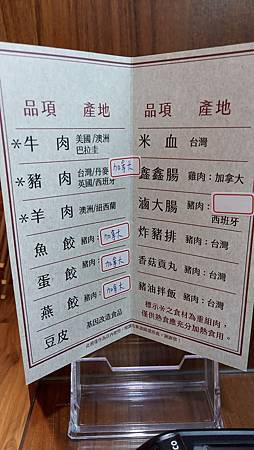 品項 產地
*牛肉 美國/澳洲
巴拉圭
*豬肉 台灣/丹麥 加拿大
英國/西班牙
*羊肉 澳洲/紐西蘭
魚餃 豬肉:加拿大
蛋餃 豬肉:加拿大
燕餃 豬肉:加拿大
豆皮 基因改造食品
品項 產地
米血 台灣
*鑫鑫腸 雞肉:加拿大
滷大腸 豬肉:
西班牙
炸豬排 豬肉:台灣
香菇貢丸 豬肉:台灣
豬油拌飯 豬肉:台灣
標示*之食材為重組肉,
僅供熱食應充分加熱食用。
CO